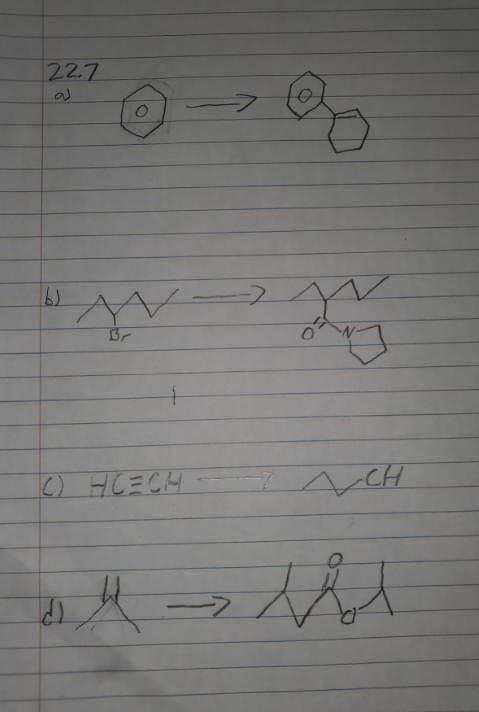 22.7
a)
b)
Br
O
N
c) HC≡CH CH
O
d)
O